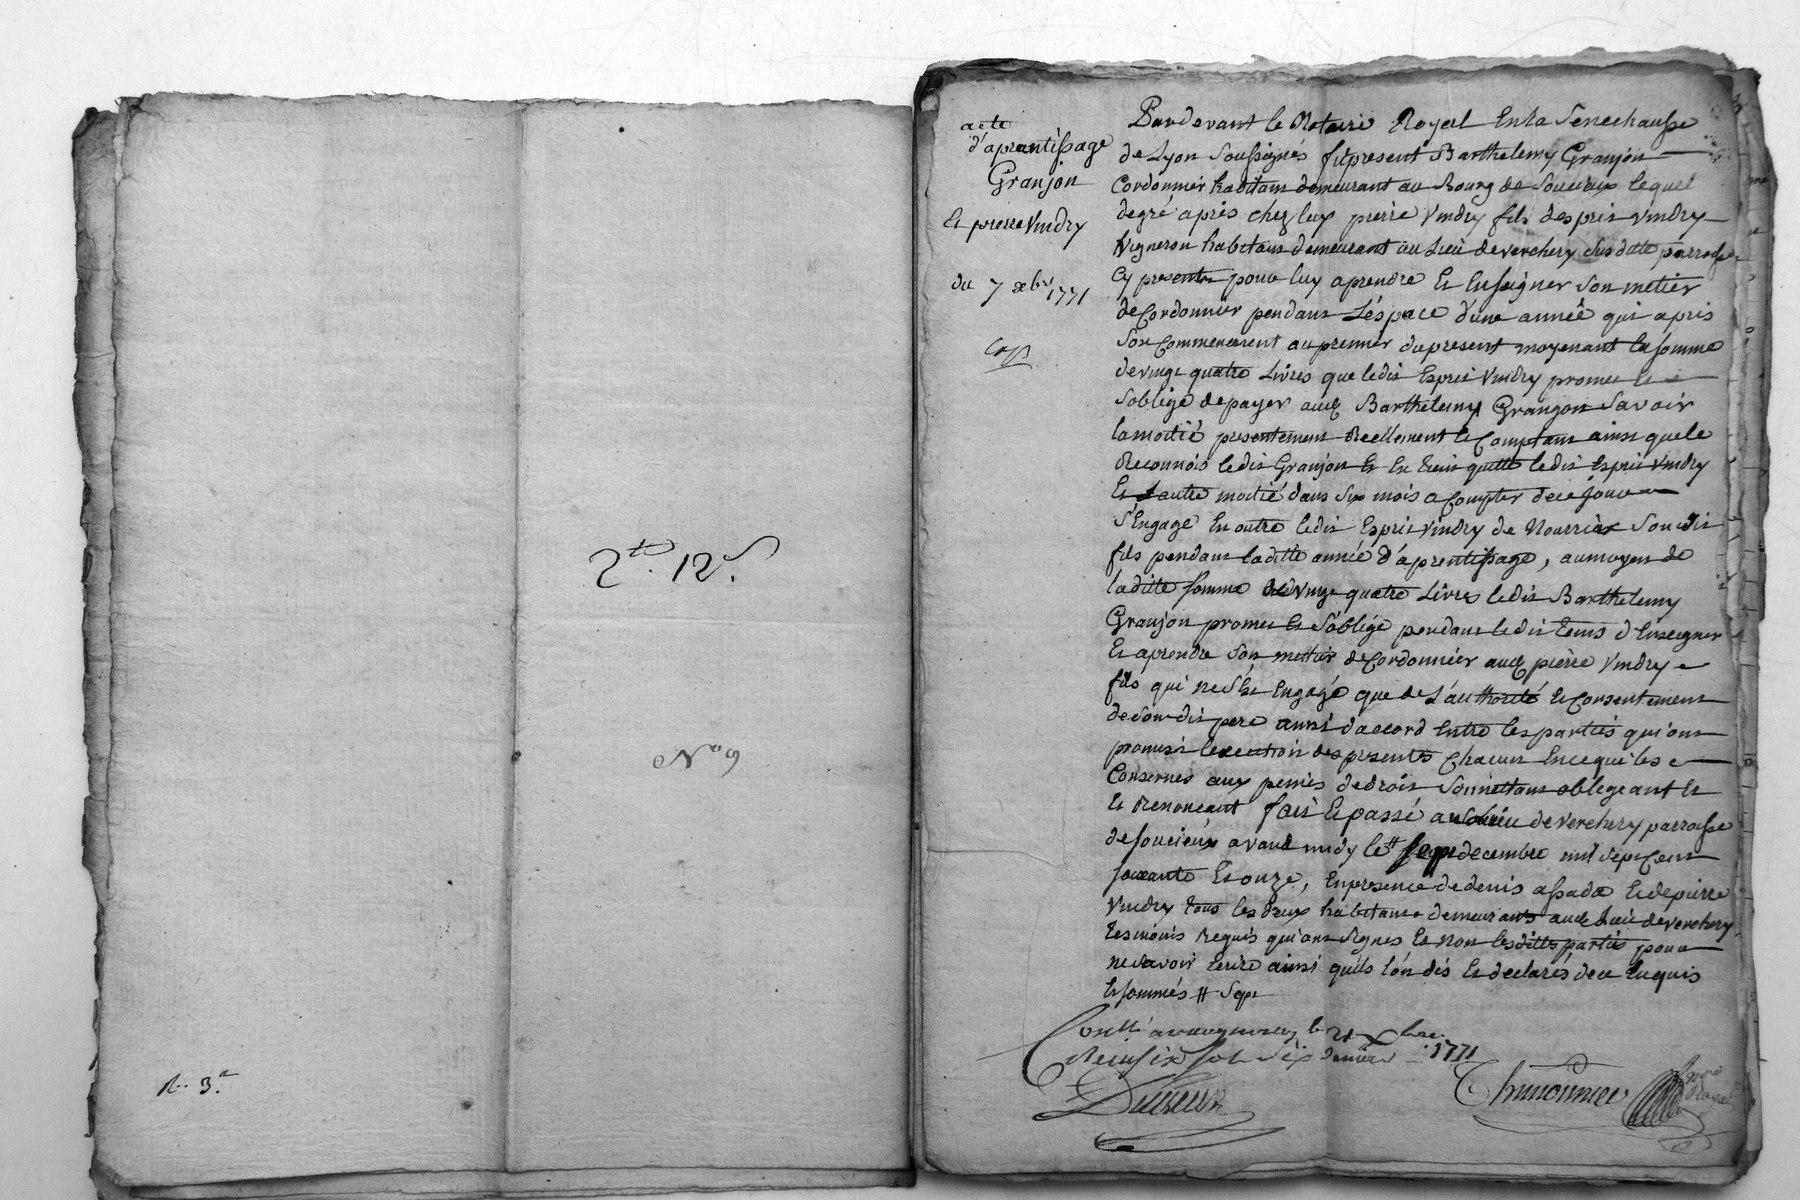 2.to 12.s
No 9
R.. 3.a
acte
d'aprantissage
Granjon
Et pierre Vindry
du 7 xbre 1771
Pardevant le Notaire Royal En la Senechausse
de Lyon Soussignés fût present Barthelemy Granjon
Cordonnier habitant demeurant au Bourg de Soucieux lequel
degré apris chez luy pierre Vindry fils desprit Vindry
Vigneron habitant demeurant au Lieu de verchery Susditte parroisse
Cy presente pour luy aprendre Et Enseigner Son metier
de Cordonnier pendant L'éspace d'une anneê qui apris
Son Commencement au premier du present moyenant la somme
de vingt quatre Livres que ledit Esprit Vindry promet Et
S'oblige de payer aud Barthelemy Granjon Savoir
la moitié presentement Reellement et Comptant ainsi que le
Reconnois ledit Granjon Et En tient quitte ledit Esprit Vindry
Et L'autre moitié dans Six mois a Compter de ce jour
S'Engage En outre ledit Esprit Vindry de Nourrir Son dit
fils pendant laditte année d'aprentissage, au moyen de
laditte somme de vingt quatre Livres ledit Barthelemy
Granjon promet Et S'oblige pendant ledit tems d'Enseigner
Et aprendre Son mettier de Cordonnier aud pierre Vindry
fils qui ne S'Est Engagé que de L'authorité Et Consentement
de Son dit pere ainsi d'accord Entre les parties qui ont
promis L'execution des presentes Chacun En ce qui les
Consernes aux peines de droit Soumettant obligeant Et
Et Renoncant fait Et passé au Lieu de verchery parroisse
de Soucieux avant midy le # Sept decembre mil Sept Cent
soixante Et onze, En presence de denis assada Et de pierre
Vindry tous les deux habitans demeurants aud Lieu de verchery
tesmoins Requis qui ont Signes Et Non lesdittes parties pour
ne Savoir Ecrire ainsi qu'ils l'ón dis Et declarés de ce Enquis
Et sommés # Sept
le 21 xbre
1771
Reçu six sols six deniers
Nore
Royal